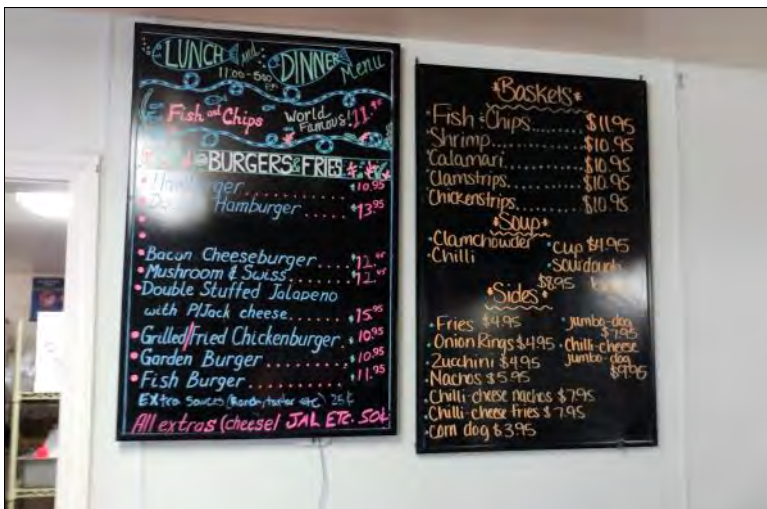 LUNCH and DINNER Menu
11:00-5:00
Fish and Chips World Famous! 11.95
BURGERS & FRIES
Hamburger ....... $10.95
Hamburger ..... $13.95
Bacon Cheeseburger .... $12.95
Mushroom & Swiss .... $12.95
Double Stuffed Jalapeno
with P/Jack cheese ..... $15.95
Grilled/Fried Chickenburger. $10.95
Garden Burger ........ $10.95
Fish Burger ......... $11.95
Extra Sauces (Ranch, tartar etc) 25¢
All extras (cheese/ JAL ETC. 50¢
Baskets
Fish & Chips........ $11.95
Shrimp.......... $10.95
Calamari......... $10.95
Clamstrips......... $10.95
Chickenstrips....... $10.95
Soup
Clamchowder
Chilli
Cup $4.95
Sourdough
$8.95
Sides
Fries $4.95
Onion Rings $4.95
Zucchini $4.95
Nachos $5.95
Chilli-cheese nachos $7.95
Chilli-cheese fries $7.95
corn dog $3.95
jumbo-dog
$7.95
Chilli-cheese
jumbo-dog
$9.95